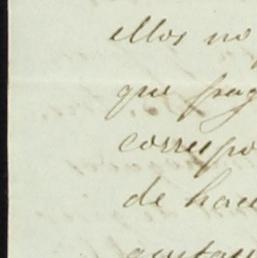 ellos no
que pag
correspo
de hace